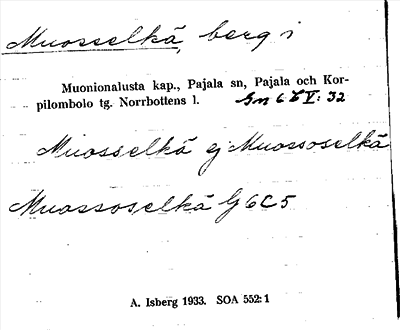 Muosselkä, berg i
Muonionalusta kap., Pajala sn, Pajala och Kor-
pilombolo tg. Norrbottens l. Gn 6 b V: 32
Muosselkä ej Muossoselkä
Muossoselkä G 6C5
A. Isberg 1933. SOA 552:1